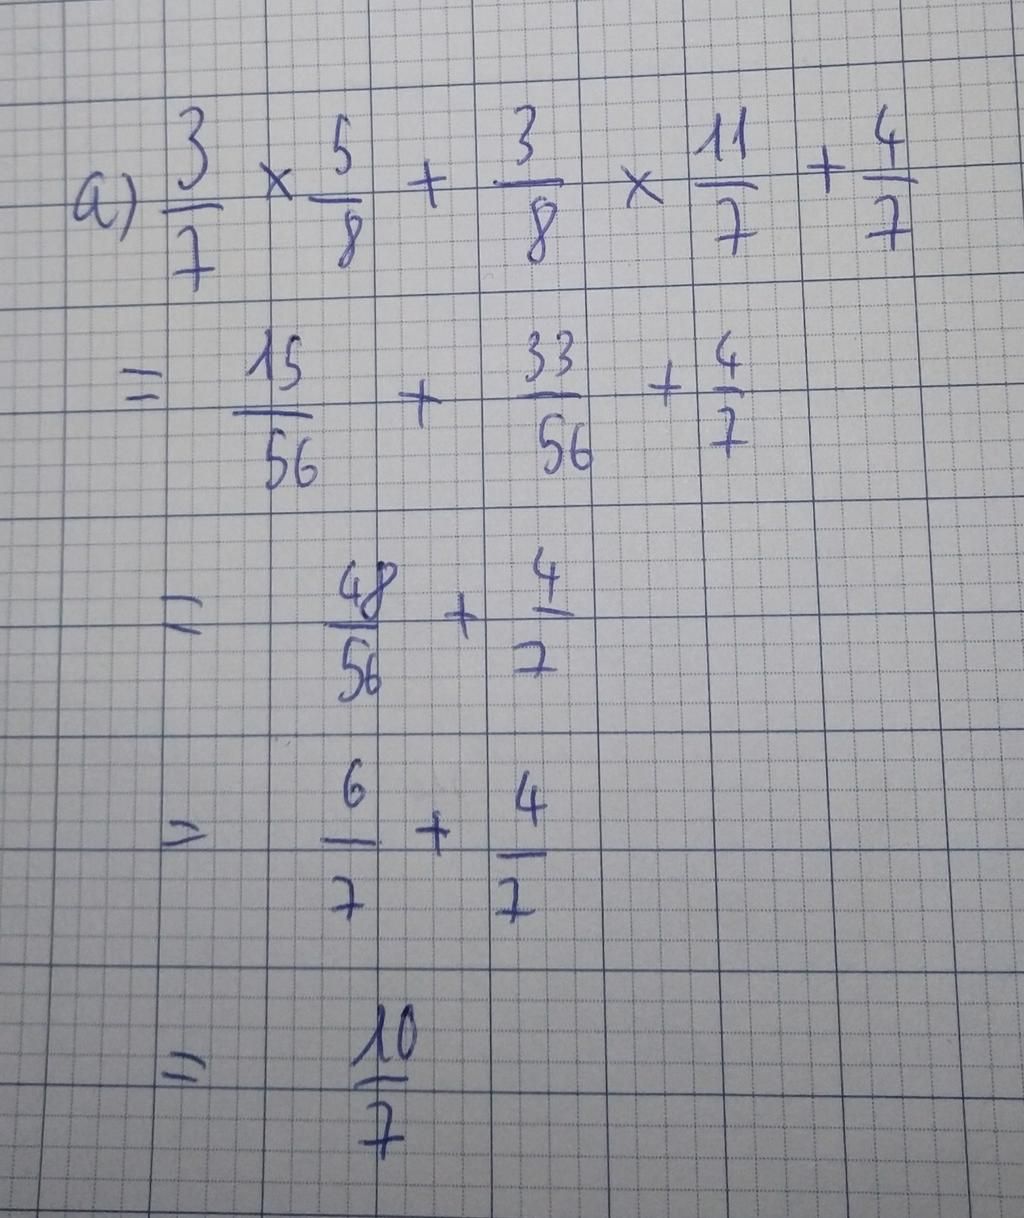 a) 3/7 × 5/8 + 3/8 × 11/7 + 4/7
= 15/56 + 33/56 + 4/7
= 48/56 + 4/7
= 6/7 + 4/7
= 10/7